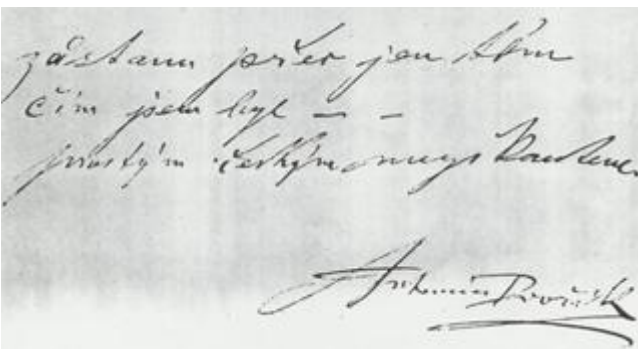 zůstanu přec jen tím
čím jsem byl – –
prostým českým muzikantem
Antonín Dvořák